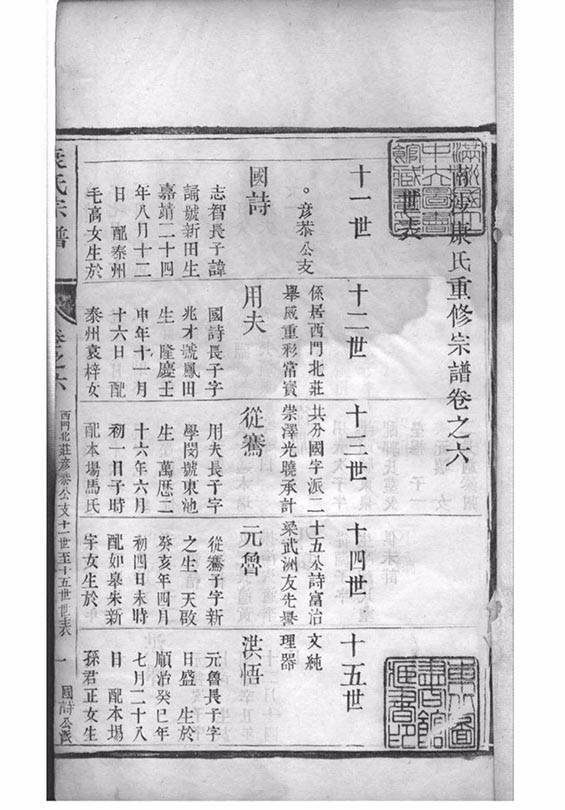 南海康氏重修宗譜卷之六
世表
十一世
十二世
十三世
十四世
十五世
。彥恭公支係居西門北莊共分國字派二十五公詩富治文純
舉威重彩富實崇澤光曉承計梁武洲友先譽理器
國詩
志智長子諱
誦號新田生
嘉靖二十四
年八月十二
日 配泰州
毛高女生於
用夫
國詩長子字
兆才號鳳田
生 隆慶壬
申年十一月
十六日 配
泰州袁梓女
從騫
用夫長子字
學閔號東池
生 萬歷二
十六年六月
初一日子時
配本場馬氏
元魯
從騫子字新
之生 天啟
癸亥年四月
初四日未時
配如皋朱新
宇女生於
洪悟
元魯長子字
日盛 生於
順治癸巳年
七月二十八
日 配本場
孫君正女生
氏宗譜
卷之六
西門北莊彥恭公支十一世至十五世世表
一
國詩公派
東北圖書館藏書印